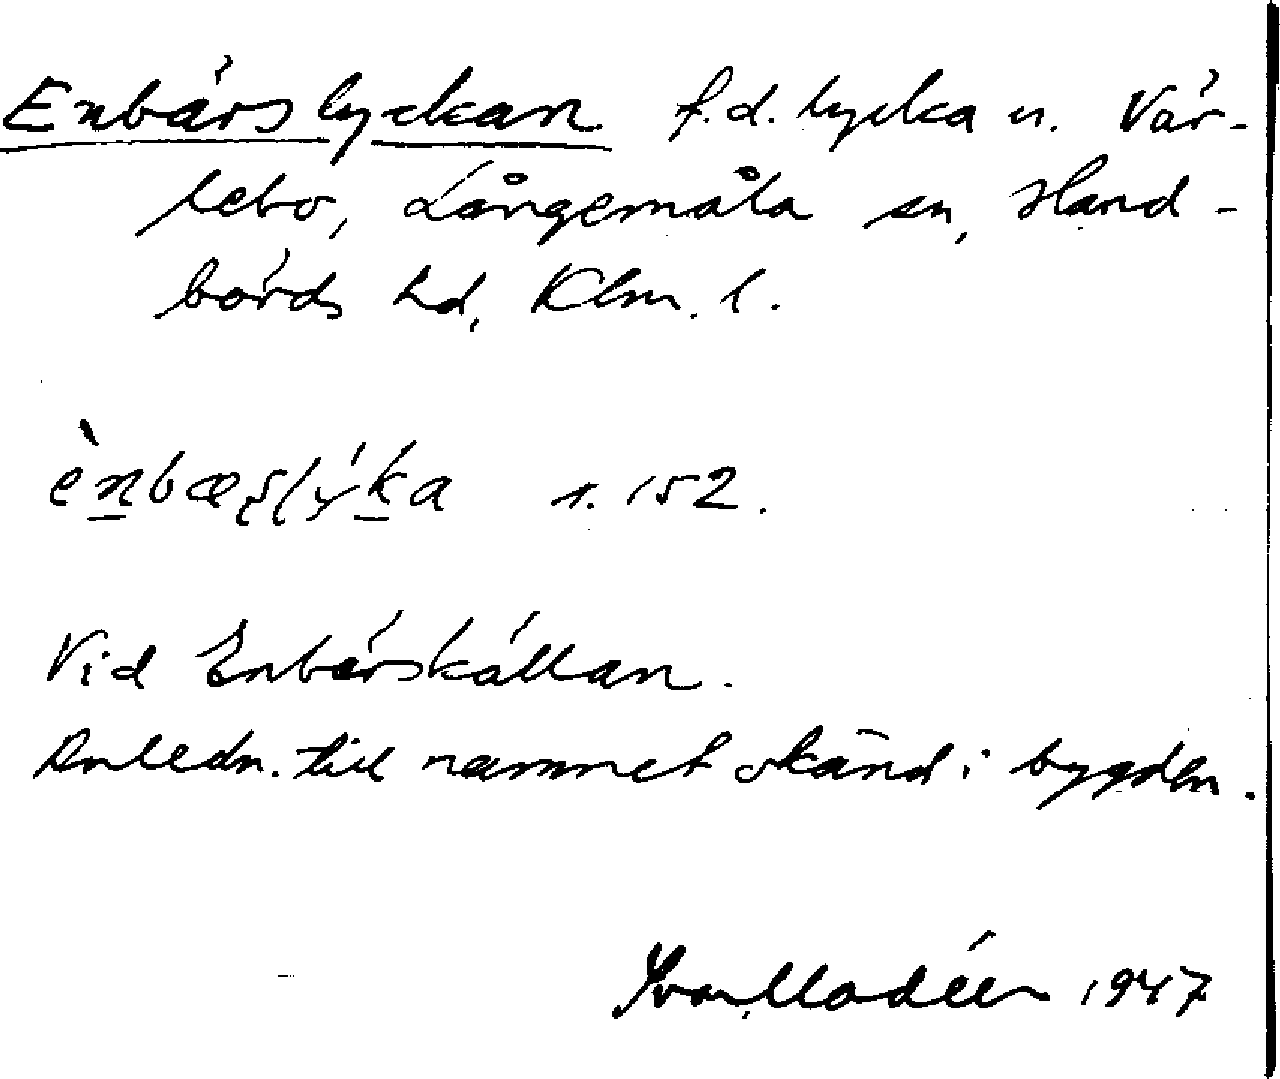 Enbärslyckan f.d. lycka u. Vär-
lebo, Långemåla sn, Hand-
börds hd, Klm. l.
ènbæʂlýka s. 152.
Vid Enbärskällan.
Anledn. till namnet okänd i bygden.
Ivar Modéer 1947